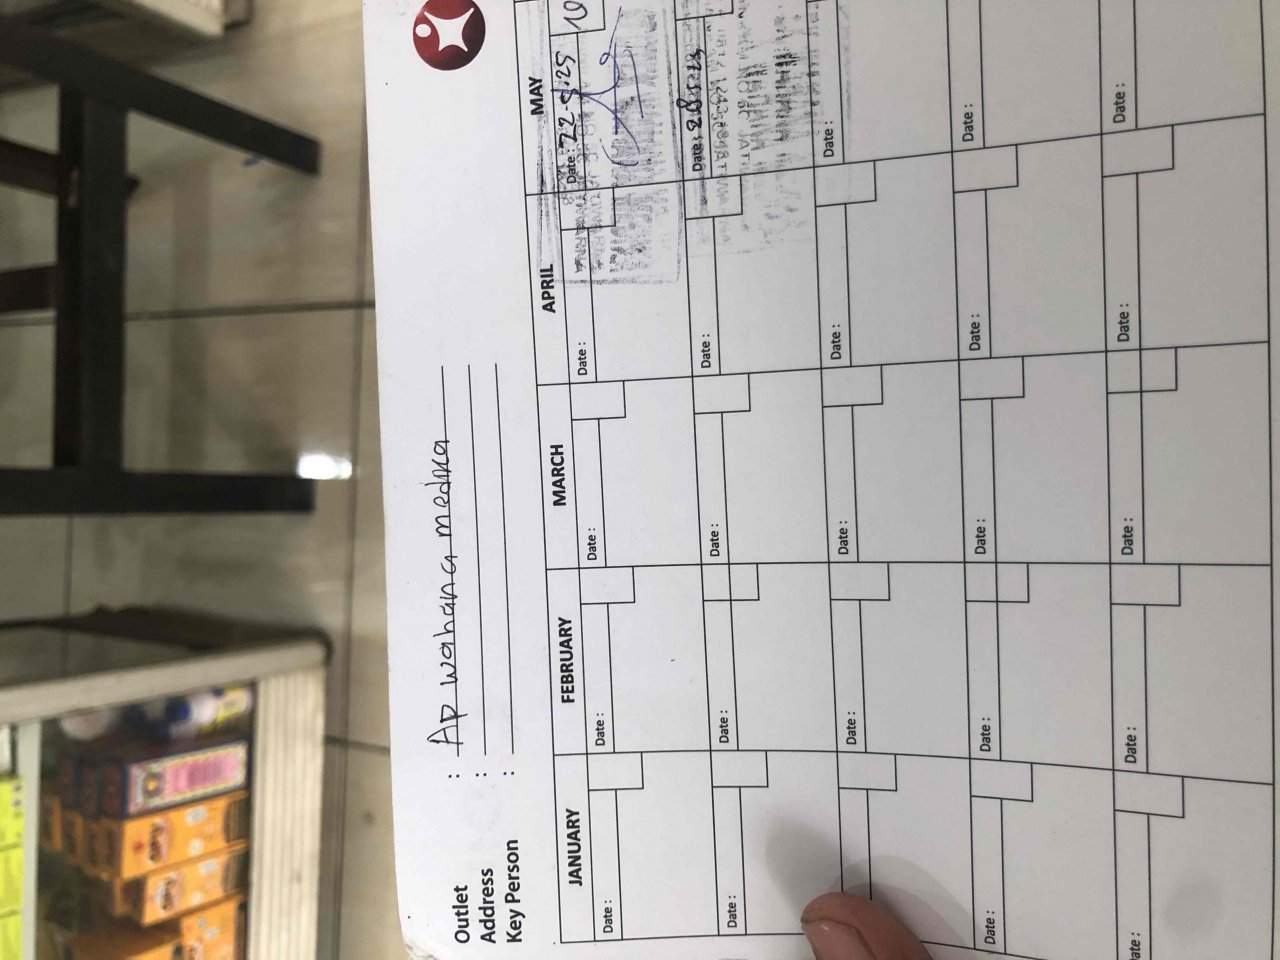 Outlet : Ap wahana medika
Address :
Key Person :
JANUARY FEBRUARY MARCH APRIL MAY
Date : Date : Date : Date : Date : 22-5-25 10
Date : Date : Date : Date : Date :
Date : Date : Date : Date :
Date : Date : Date : Date : Date :
Date : Date : Date : Date : Date :